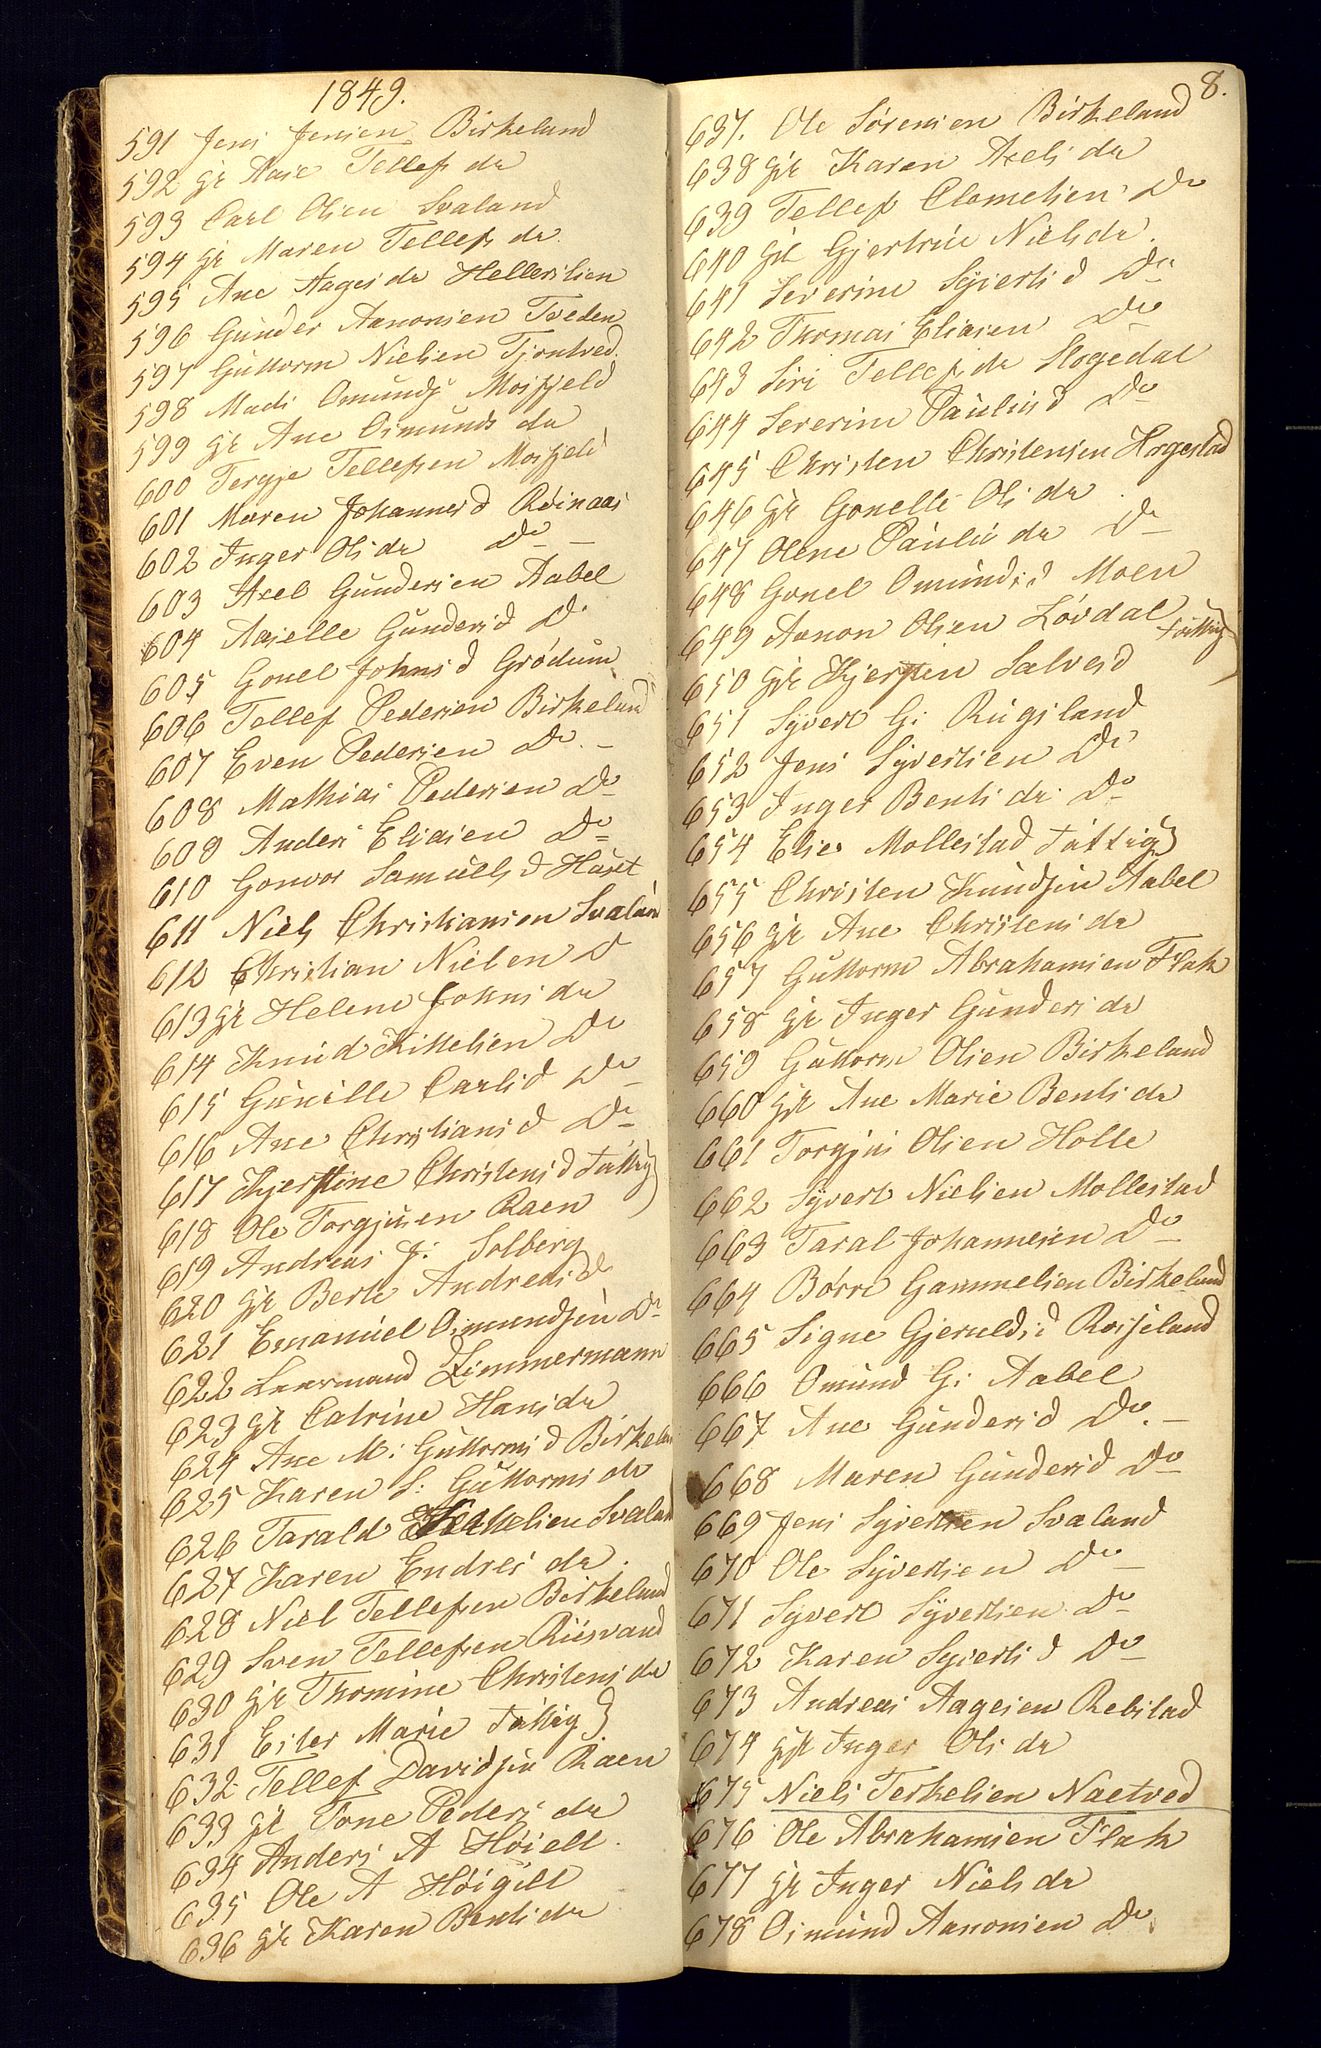 1849.
591 Jens Jensen Birkeland
592 gk Aase Tellefs da
593 Carl Olsen Svaland
594 gk Maren Tellefs da.
595 Ane Aages da Hellerslien
596 Gunder Aanonsen Tveden
597 Guttorm Nielsen Tjontved.
598 Mads Omunds Mosfjeld
599 gk Ane Osmunds da
600 Tergje Tellefsen Mosfjeld
601 Maren Johannesd Røinaas
602 Inger Ols da Do
603 Axel Gundersen Aabel
604 Aaselle Gundersd Do
605 Gonel Johnsd Grødum
606 Tellef Pedersen Birkeland
607 Even Pedersen Do
608 Mathias Pedersen Do
609 Anders Eliasen Do
610 Gonvor Samuelsd Huset
611 Niels Christiansen Svaland
612 Christian Nielsen D
613 gk Helene Johns da
614 Knud Kittelsen Do
615 Gunille Carlsd Do
616 Ane Christiansd Do
617 Kjerstine Christensd fattig
618 Ole Torgjusen Raen
619 Andreas J: Solberg
620 gk Berte Andreas d
621 Emanuel Osmundsen Do
622 Leermand Zimmermann
623 gk Catrine Hans da
624 Ane M: Guttorms d Birkelan
625 Karen S: Guttorms da
626 Tarald Svaland
627 Karen Endres da.
628 Niel Tellefsen Birkeland
629 Sven Tellefsen Riisvand
630 gk Thomine Christens da
631 Ester Marie fattig
632 Tellef Davidsen Raen
633 gk Tone Peders da
634 Anders A Høiell.
635 Ole A Høigilt
636 gk Karen Bents da
8.
637. Ole Sørensen Birkeland
638 gk Karen Axels da
639 Tellef Clemetsen Do
640 gk Gjertrue Niels da.
641 Severine Syverts d Do
642 Thomas Eliasen Do
643 Siri Tellefs da Hogedal
644 Severine Paulus d Do
645 Christen Christensen Hogestad
646 gk Gonelle Ols da.
647 Olene Paulus da Do
648 Gonel Omunds d Moen
649 Aanon Olsen Løvdal fattig
650 gk Kjersten Salvesd
651 Syvert G: Rugsland
652 Jens Syvertsen Do
653 Inger Bents da. Do
654 Elies Mollestad fattig
655 Christen Knudsen Aabel
656 gk Ane Christens da
657 Guttorm Abrahamsen Flak
658 gk Inger Gunders da
659 Guttorm Olsen Birkeland
660 gk Ane Marie Bents da
661 Torgjus Olsen Holte
662 Syvert Nielsen Mollestad
663 Taral Johannesen Do
664 Børre Gammelsen Birkeland
665 Signe Gjerulds d Rosseland
666 Omund G: Aabel
667 Ane Gundersd Do.
668 Maren Gundersd Do
669 Jens Syvertsen Svaland
670 Ole Syvertsen Do
671 Syvert Syvertsen Do
672 Karen Syverts d Do
673 Andreas Aagesen Rebstad
674 gk Inger Ols da
675 Niels Terkelsen Naetved
676 Ole Abrahamsen Flak
677 gk Inger Niels da
678 Osmund Aanonsen Do